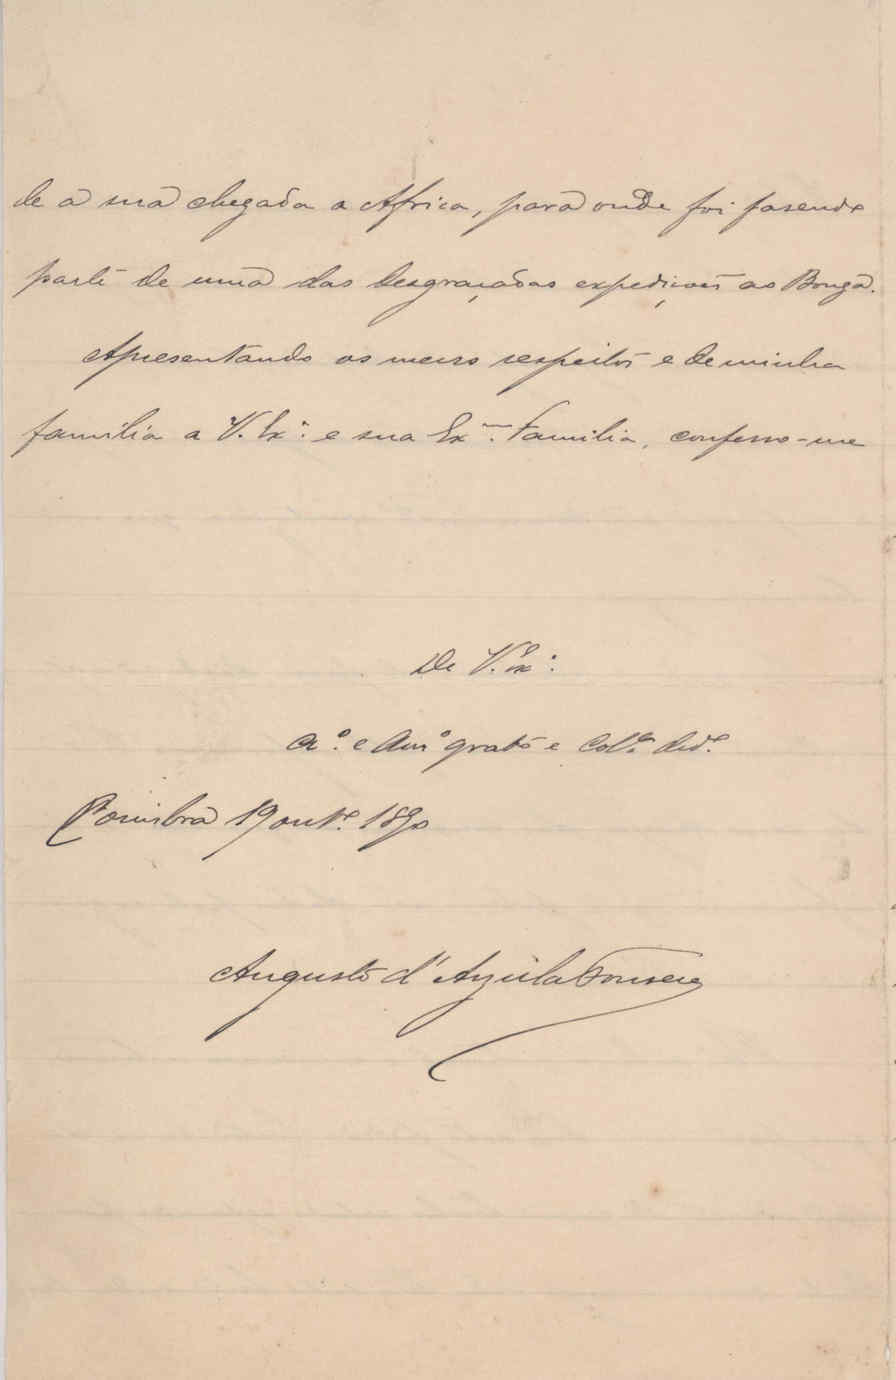 de a sua chegada a Africa, para onde foi fasendo
parte de uma das desgraçadas expedições ao Bonga.
Apresentando os meus respeitos e de minha
familia a V. Ex.ª e sua Ex.ma Familia, confesso-me
De V. Ex.ª
A.º e Am.º grato e Col.ª ded.º
Coimbra 19 out.º 1890
Augusto d'Arzila Fonseca